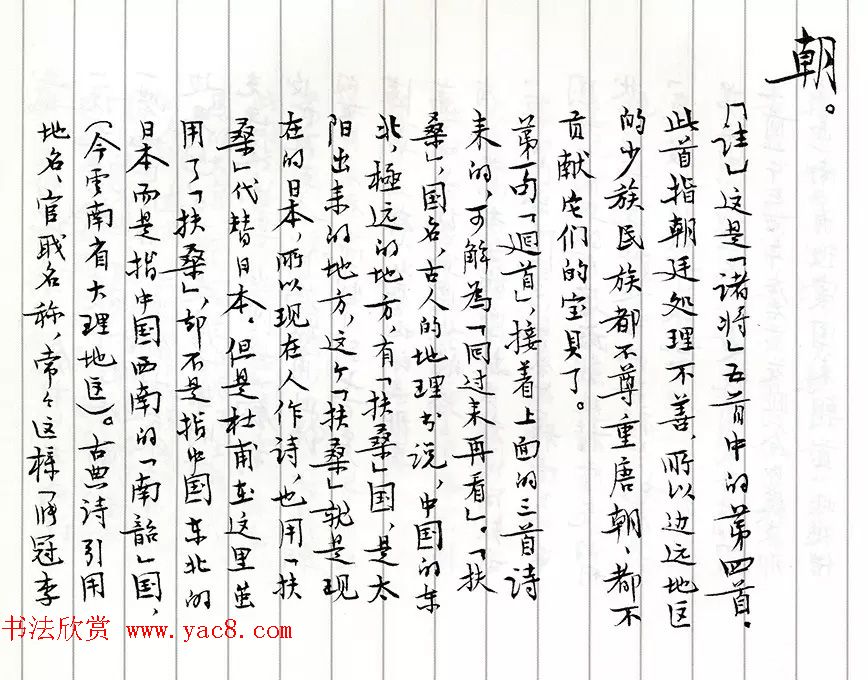 朝。
「註」这是「諸将」五首中的第四首。
此首指朝廷处理不善，所以边远地区
的少族民族都不尊重唐朝、都不
贡献它们的宝貝了。
第一句「迴首」，接着上面的三首诗
来的，可解為「回过来再看」。「扶
桑」，国名，古人的地理书说，中国的东
北，極远的地方，有「扶桑」国，是太
阳出来的地方，这个「扶桑」就是现
在的日本，所以现在人作诗，也用「扶
桑」代替日本。但是杜甫在这里虽
用了「扶桑」，却不是指中国东北的
日本而是指中国西南的「南韶」国，
（今雲南省大理地区）。古典诗引用
地名、官职名称，常々这樣「张冠李
书法欣赏 www.yac8.com